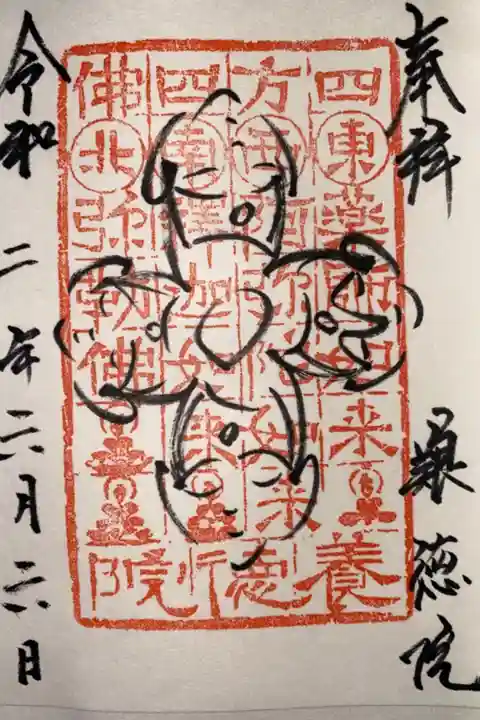 奉拝
徳院
四東薬師如来養
方西阿弥陀如来徳
四南釈迦如来
佛北弥勒佛院
令和二年六月六日